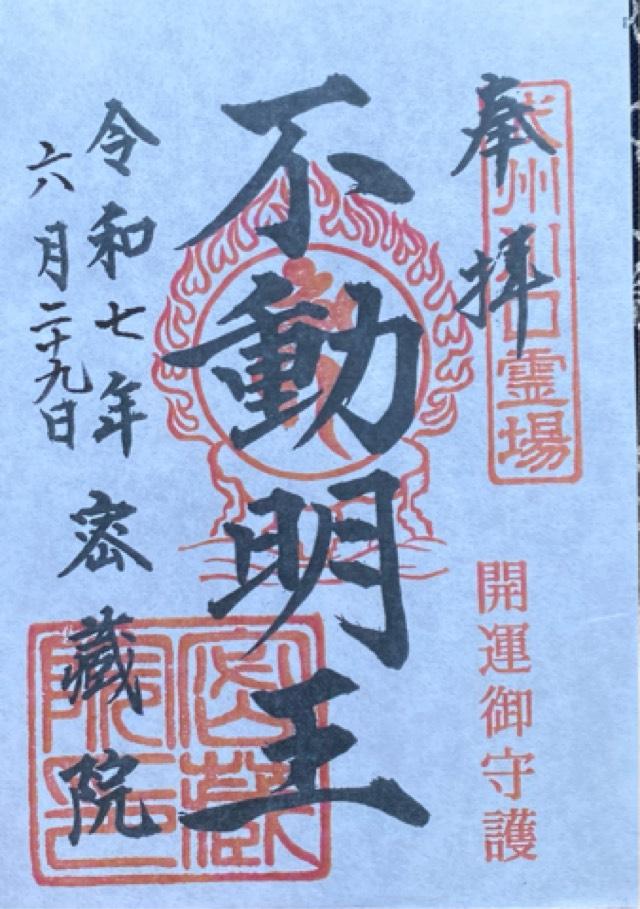 奉拝
武州川口霊場
開運御守護
不動明王
令和七年
六月二十九日
密蔵院
密蔵院印